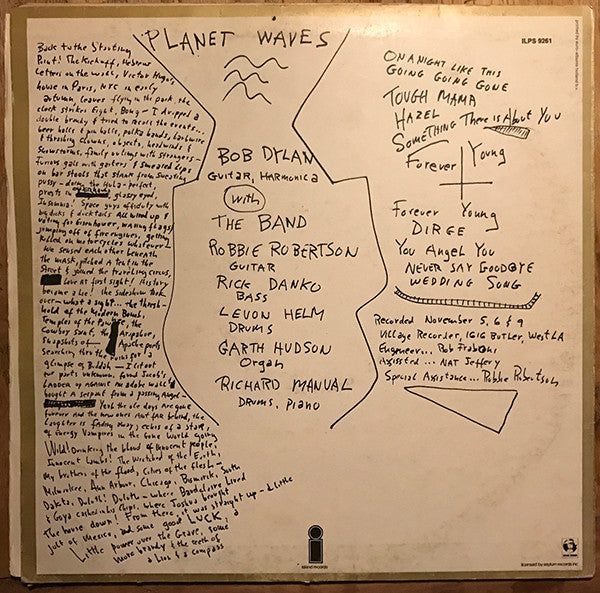 PLANET WAVES
ILPS 9261
Back to the Starting
Point! The Kickoff, Hebrew
Letters on the wall, Victor Hugo's
house in Paris, NYC in early
autumn, leaves flying in the park, the
clock strikes Eight, Bong — I dropped a
double brandy & tried to recall the events...
beer halls & pin balls, polka bands, barbwire
& thrashing clowns, objects, headwinds &
Snowstorms, family outings with strangers —
Furious gals with garters & smeared lips
on bar stools that stank from sweating
pussy — doing the Hula — perfect,
priests in glassy eyed,
Insomnia! Space guys off duty with
big dicks & ducktails all wired up &
voting for Eisenhower, waving flags &
jumping off of fire engines, getting
killed on motorcycles whatever —
We sensed each other beneath
the mask, pitched a tent in the
Street & joined the traveling circus,
love at first sight! History
became a lie! the sideshow took
over — what a sight... the thresh-
hold of the Modern Bomb,
Temples of the Pawnee, the
Cowboy Saint, the Arapahoe,
Snapshots of Apache poets
Searching thru the ruins for a
glimpse of Buddah — I lit out
for parts unknown, found Jacob's
Ladder up against an adobe wall &
bought a serpent from a passing Angel —
Yeah the ole days are gone
forever and the new ones aint far behind, the
Laughter is fading away, echos of a star,
of Energy Vampires in the Gone World going
Wild! Drinking the blood of innocent people,
Innocent Lambs! The Wretched of the Earth,
My brothers of the flood, Cities of the flesh —
Milwaukee, Ann Arbor, Chicago, Bismarck, South
Dakota, Duluth! Duluth — where Baudelaire Lived
& Goya cashed in his Chips, where Joshua brought
The house down! From there, it was straight up — a little
jolt of Mexico, and some good LUCK, a
Little power over the Grave, some
more brandy & the teeth of
a Lion & a compass
BOB DYLAN
GUITAR, HARMONICA
with
THE BAND
ROBBIE ROBERTSON
GUITAR
RICK DANKO
BASS
LEVON HELM
DRUMS
GARTH HUDSON
Organ
RICHARD MANUAL
DRUMS, PIANO
ON A NIGHT LIKE THIS
GOING GOING GONE
TOUGH MAMA
HAZEL
SOMETHING There is About You
Forever Young
Forever Young
DIRGE
You Angel You
NEVER SAY GOODBYE
WEDDING SONG
Recorded November 5, 6 & 9
Village Recorder, 1616 Butler, West LA
Engineer... Rob Fraboni
Assisted... NAT Jeffery
Special Assistance... Robbie Robertson
island records
licensed by asylum records inc